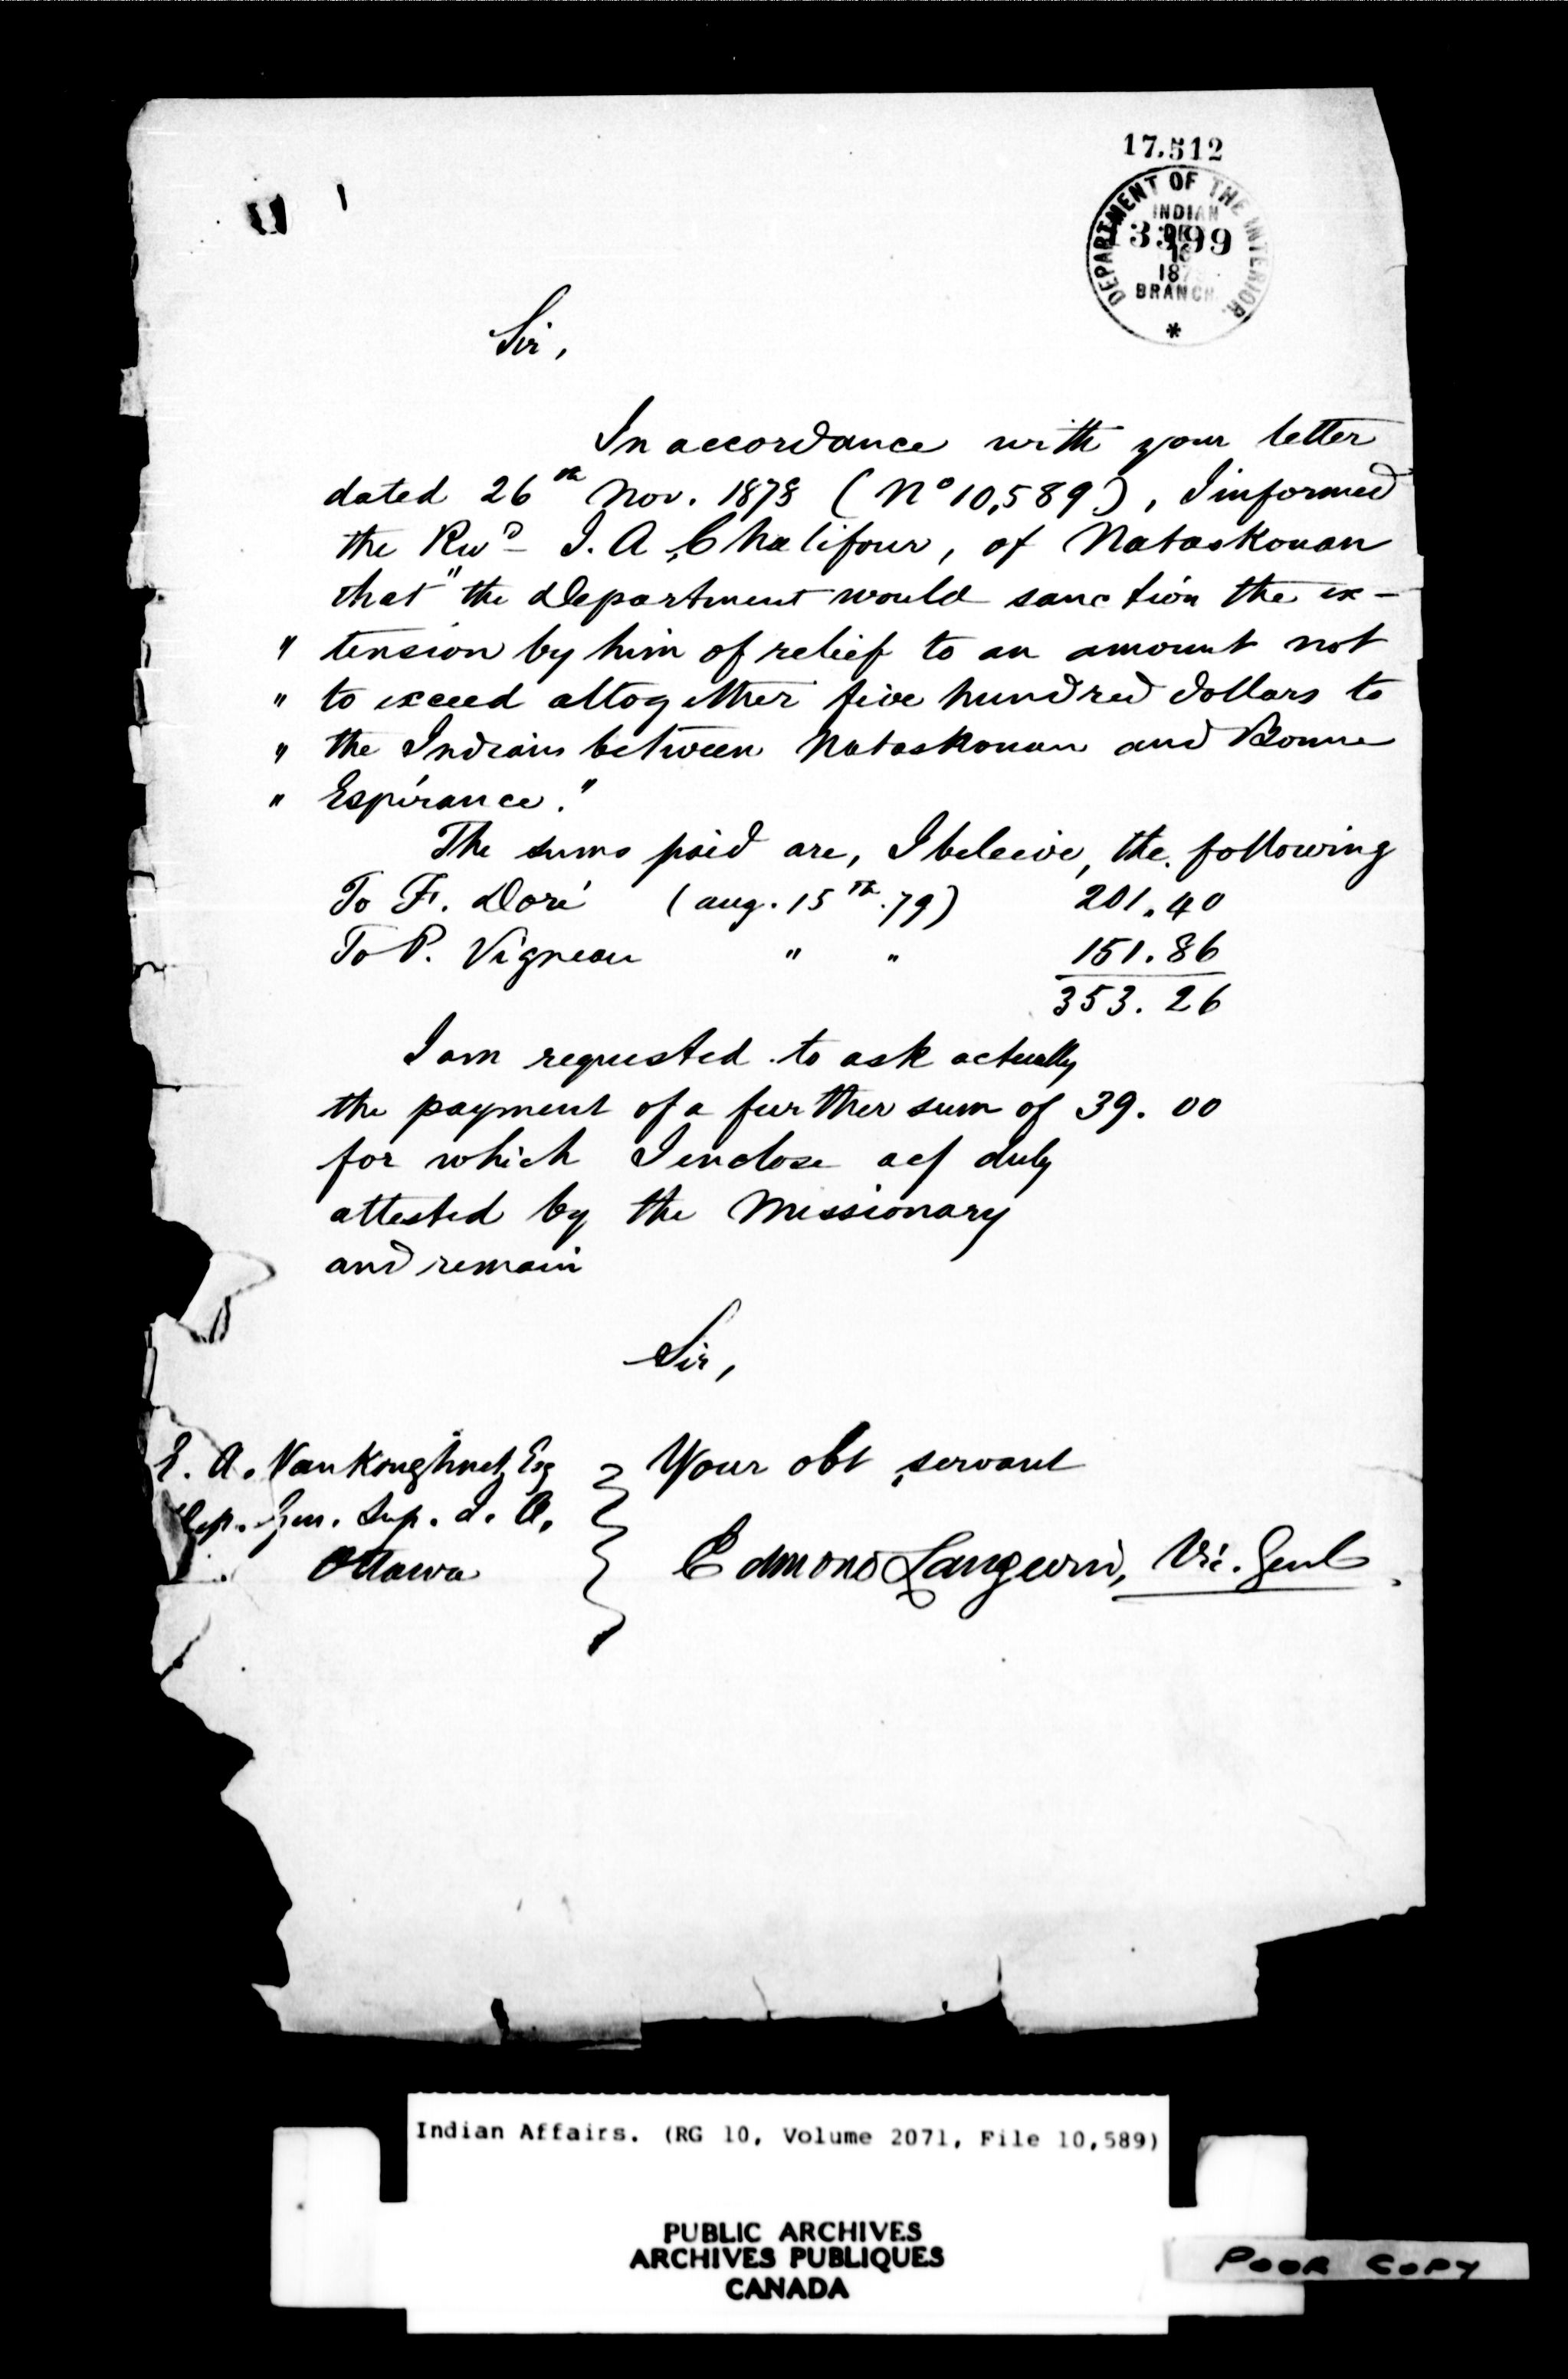 17.512
DEPARTMENT OF THE INTERIOR
INDIAN
3399
187
BRANCH
*
Sir,
In accordance with your letter
dated 26th Nov. 1878 (No 10,589), I informed
the Revd J. A. Chalifour, of Nataskouan
that "the Department would sanction the ex-
" tension by him of relief to an amount not
" to exceed altogether five hundred dollars to
" the Indians between Nataskouan and Bonne
" Espérance."
The sums paid are, I beleeive, the following
To F. Doré (aug. 15th. 79) 201.40
To P. Vigneau " " 151.86
353.26
I am requested to ask actually
the payment of a further sum of 39.00
for which I enclose ac/ duly
attested by the Missionary
and remain
Sir,
E. A. VanKoughnet, Esq
Dep. Gen. Sup. I. A.
Ottawa
Your obt servant
Edmond Langevin, Vic. Genl.
Indian Affairs. (RG 10, Volume 2071, File 10,589)
PUBLIC ARCHIVES
ARCHIVES PUBLIQUES
CANADA
POOR COPY